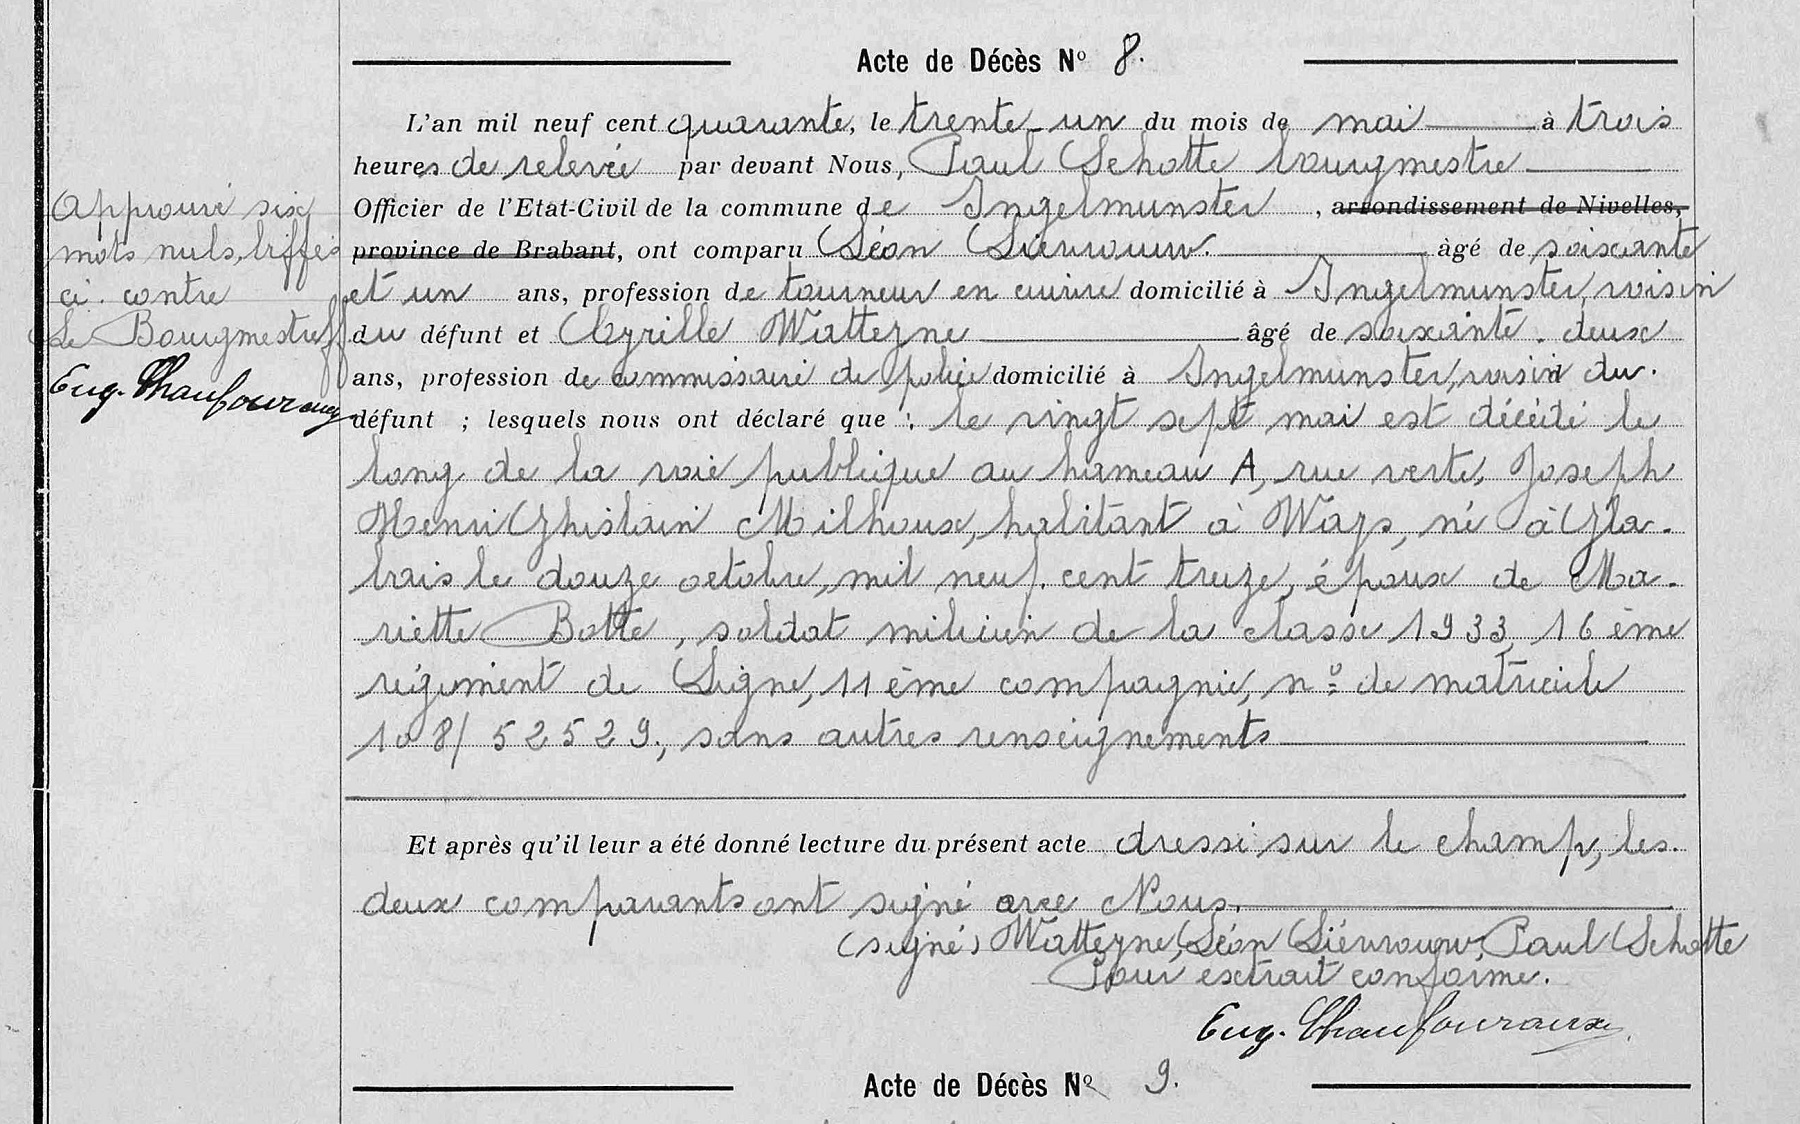 Acte de Décès Nº 8.
L'an mil neuf cent quarante, le trente-un du mois de mai à trois
heures de relevée par devant Nous, Paul Schotte bourgmestre
Officier de l'Etat-Civil de la commune de Ingelmunster, arrondissement de Nivelles,
province de Brabant, ont comparu Léon Liévrouw. âgé de soixante
et un ans, profession de tourneur en cuivre domicilié à Ingelmunster, voisin
du défunt et Cyrille Watteyne âgé de soixante-deux
ans, profession de commissaire de police domicilié à Ingelmunster, voisin du
défunt ; lesquels nous ont déclaré que : le vingt sept mai est décédé le
long de la voie publique au hameau A, rue verte, Joseph
Henri Ghislain Milhoux, habitant à Ways, né à Gla-
bais le douze octobre, mil neuf cent treize, époux de Ma-
riette Botte, soldat milicien de la classe 1933, 16ème
régiment de Ligne, 11ème compagnie, nº de matricule
108/52529, sans autres renseignements
Et après qu'il leur a été donné lecture du présent acte dressé sur le champ, les
deux comparants ont signé avec Nous.
(signé) Watteyne, Léon Liévrouw, Paul Schotte
Pour extrait conforme.
Eug. Chaufouraux
Approuvé six
mots nuls, biffés
ci-contre
Le Bourgmestre ff
Eug. Chaufouraux
Acte de Décès Nº 9.